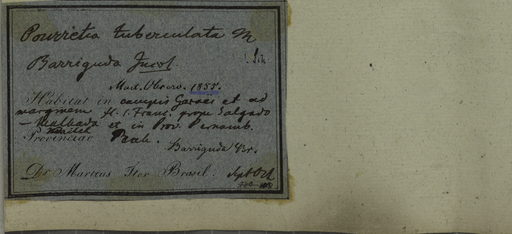 Pourretia tuberculata M
Barriguda Incol.
Mart. Observ. 1855.
Habitat in campis Geraes et ad
marginem fl. S. Franc. prope Salgado
— Malhada et in Prov. Pernamb.
Provinciae
Barriguda Br.
Dr. Martius Iter Brasil. Sept Oct